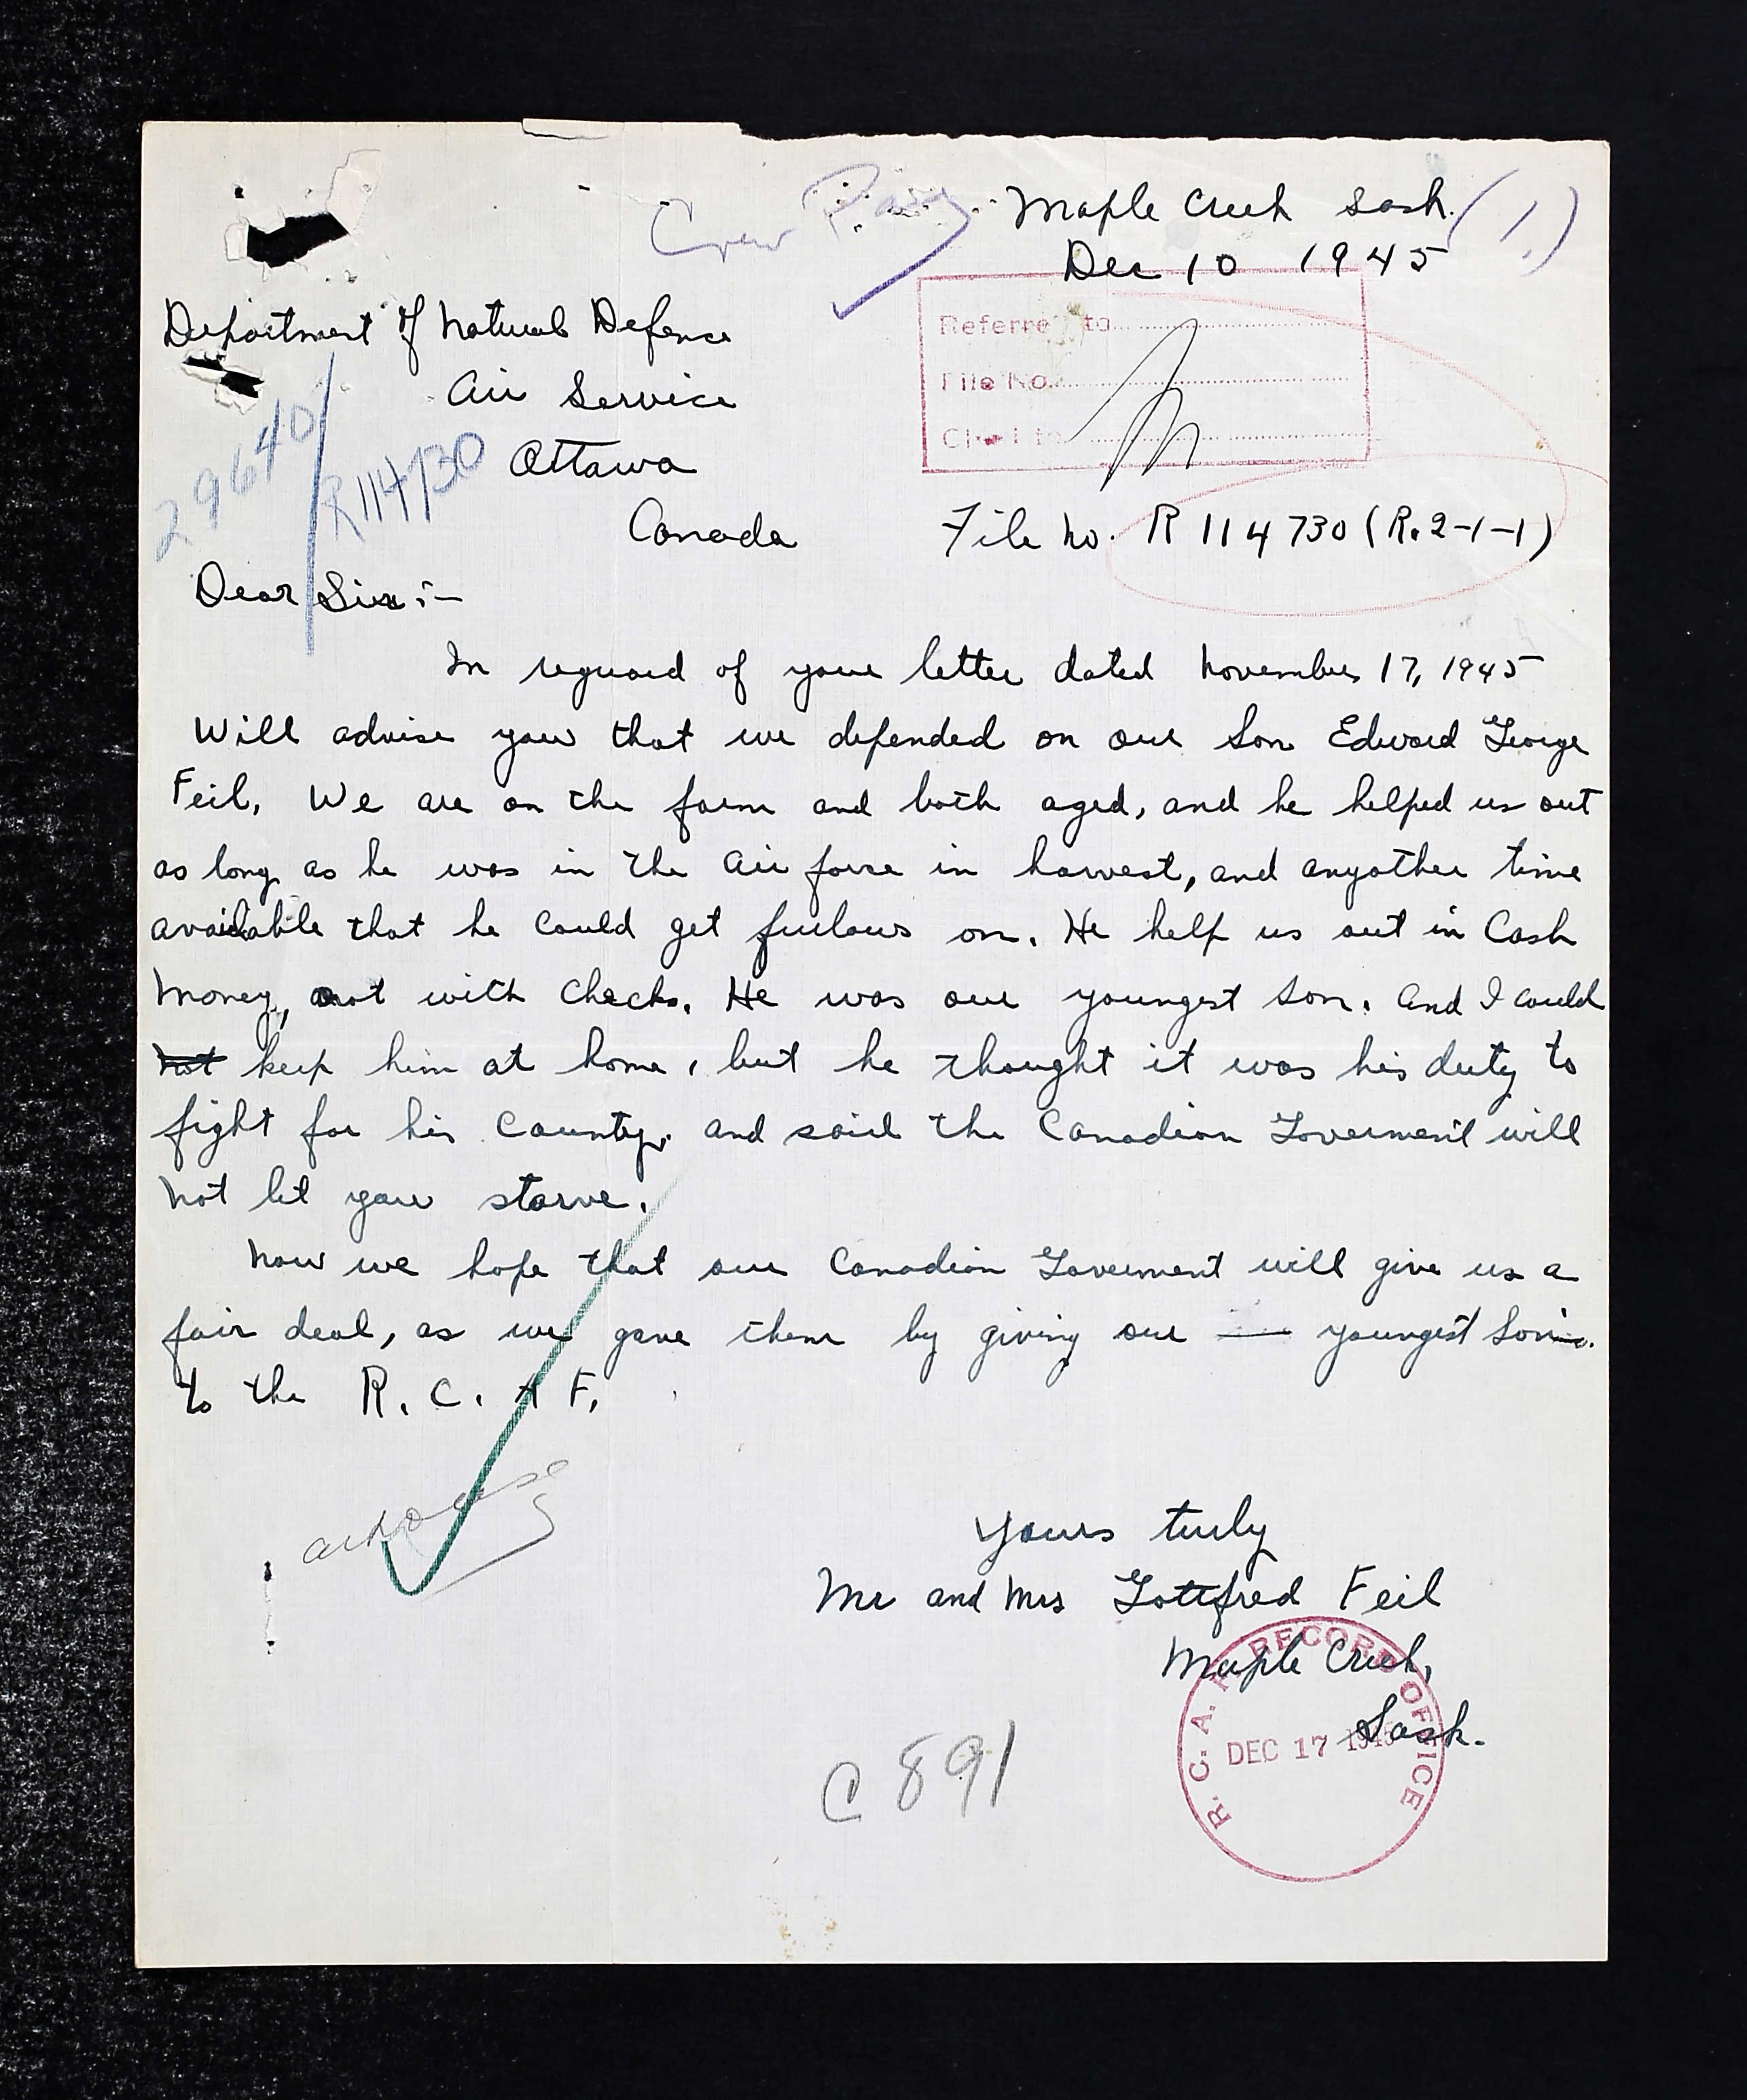 Maple Creek Sask. (1.)
Dec 10 1945
Department of Natural Defence
Referred to
Air Service
File No.
29640
R114730
Ottawa
Canada
File No. R 114730 (R.2-1-1)
Dear Sir:-
In reguard of your letter dated November 17, 1945
Will advise you that we depended on our Son Edward George
Feil. We are on the farm and both aged, and he helped us out
as long as he was in the Air force in harvest, and anyother time
available that he could get furlows on. He help us out in Cash
Money, not with Checks. He was our youngest Son. And I could
not keep him at home, but he thought it was his duty to
fight for his County. and said the Canadian Goverment will
not let you starve.
Now we hope that our Canadian Goverment will give us a
fair deal, as we gave them by giving our youngest Son.
to the R.C.A F.
Yours truly
Mr and Mrs Gottfred Feil
Maple Creek,
Sask.
R.C.A.F. RECORDS OFFICE
DEC 17 1945
C 891